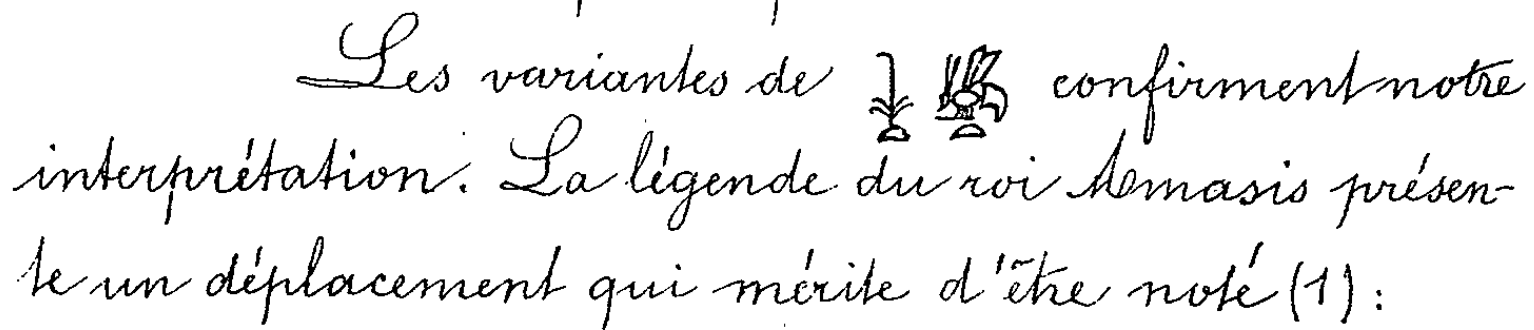 Les variantes de 𓇓𓏏𓆤𓏏 confirment notre
interprétation. La légende du roi Amasis présen-
te un déplacement qui mérite d'être noté (1) :